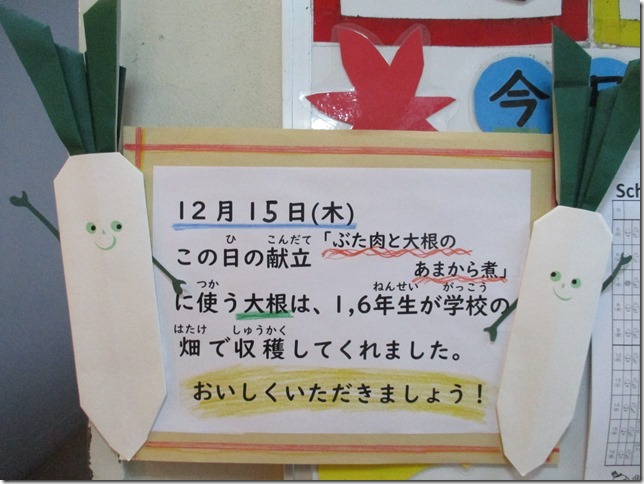 今
Sch
12月15日(木)
この日の献立「ぶた肉と大根の
あまから煮」
に使う大根は、1,6年生が学校の
畑で収穫してくれました。
おいしくいただきましょう！
ひ こんだて
つか ねんせい がっこう
はたけ しゅうかく